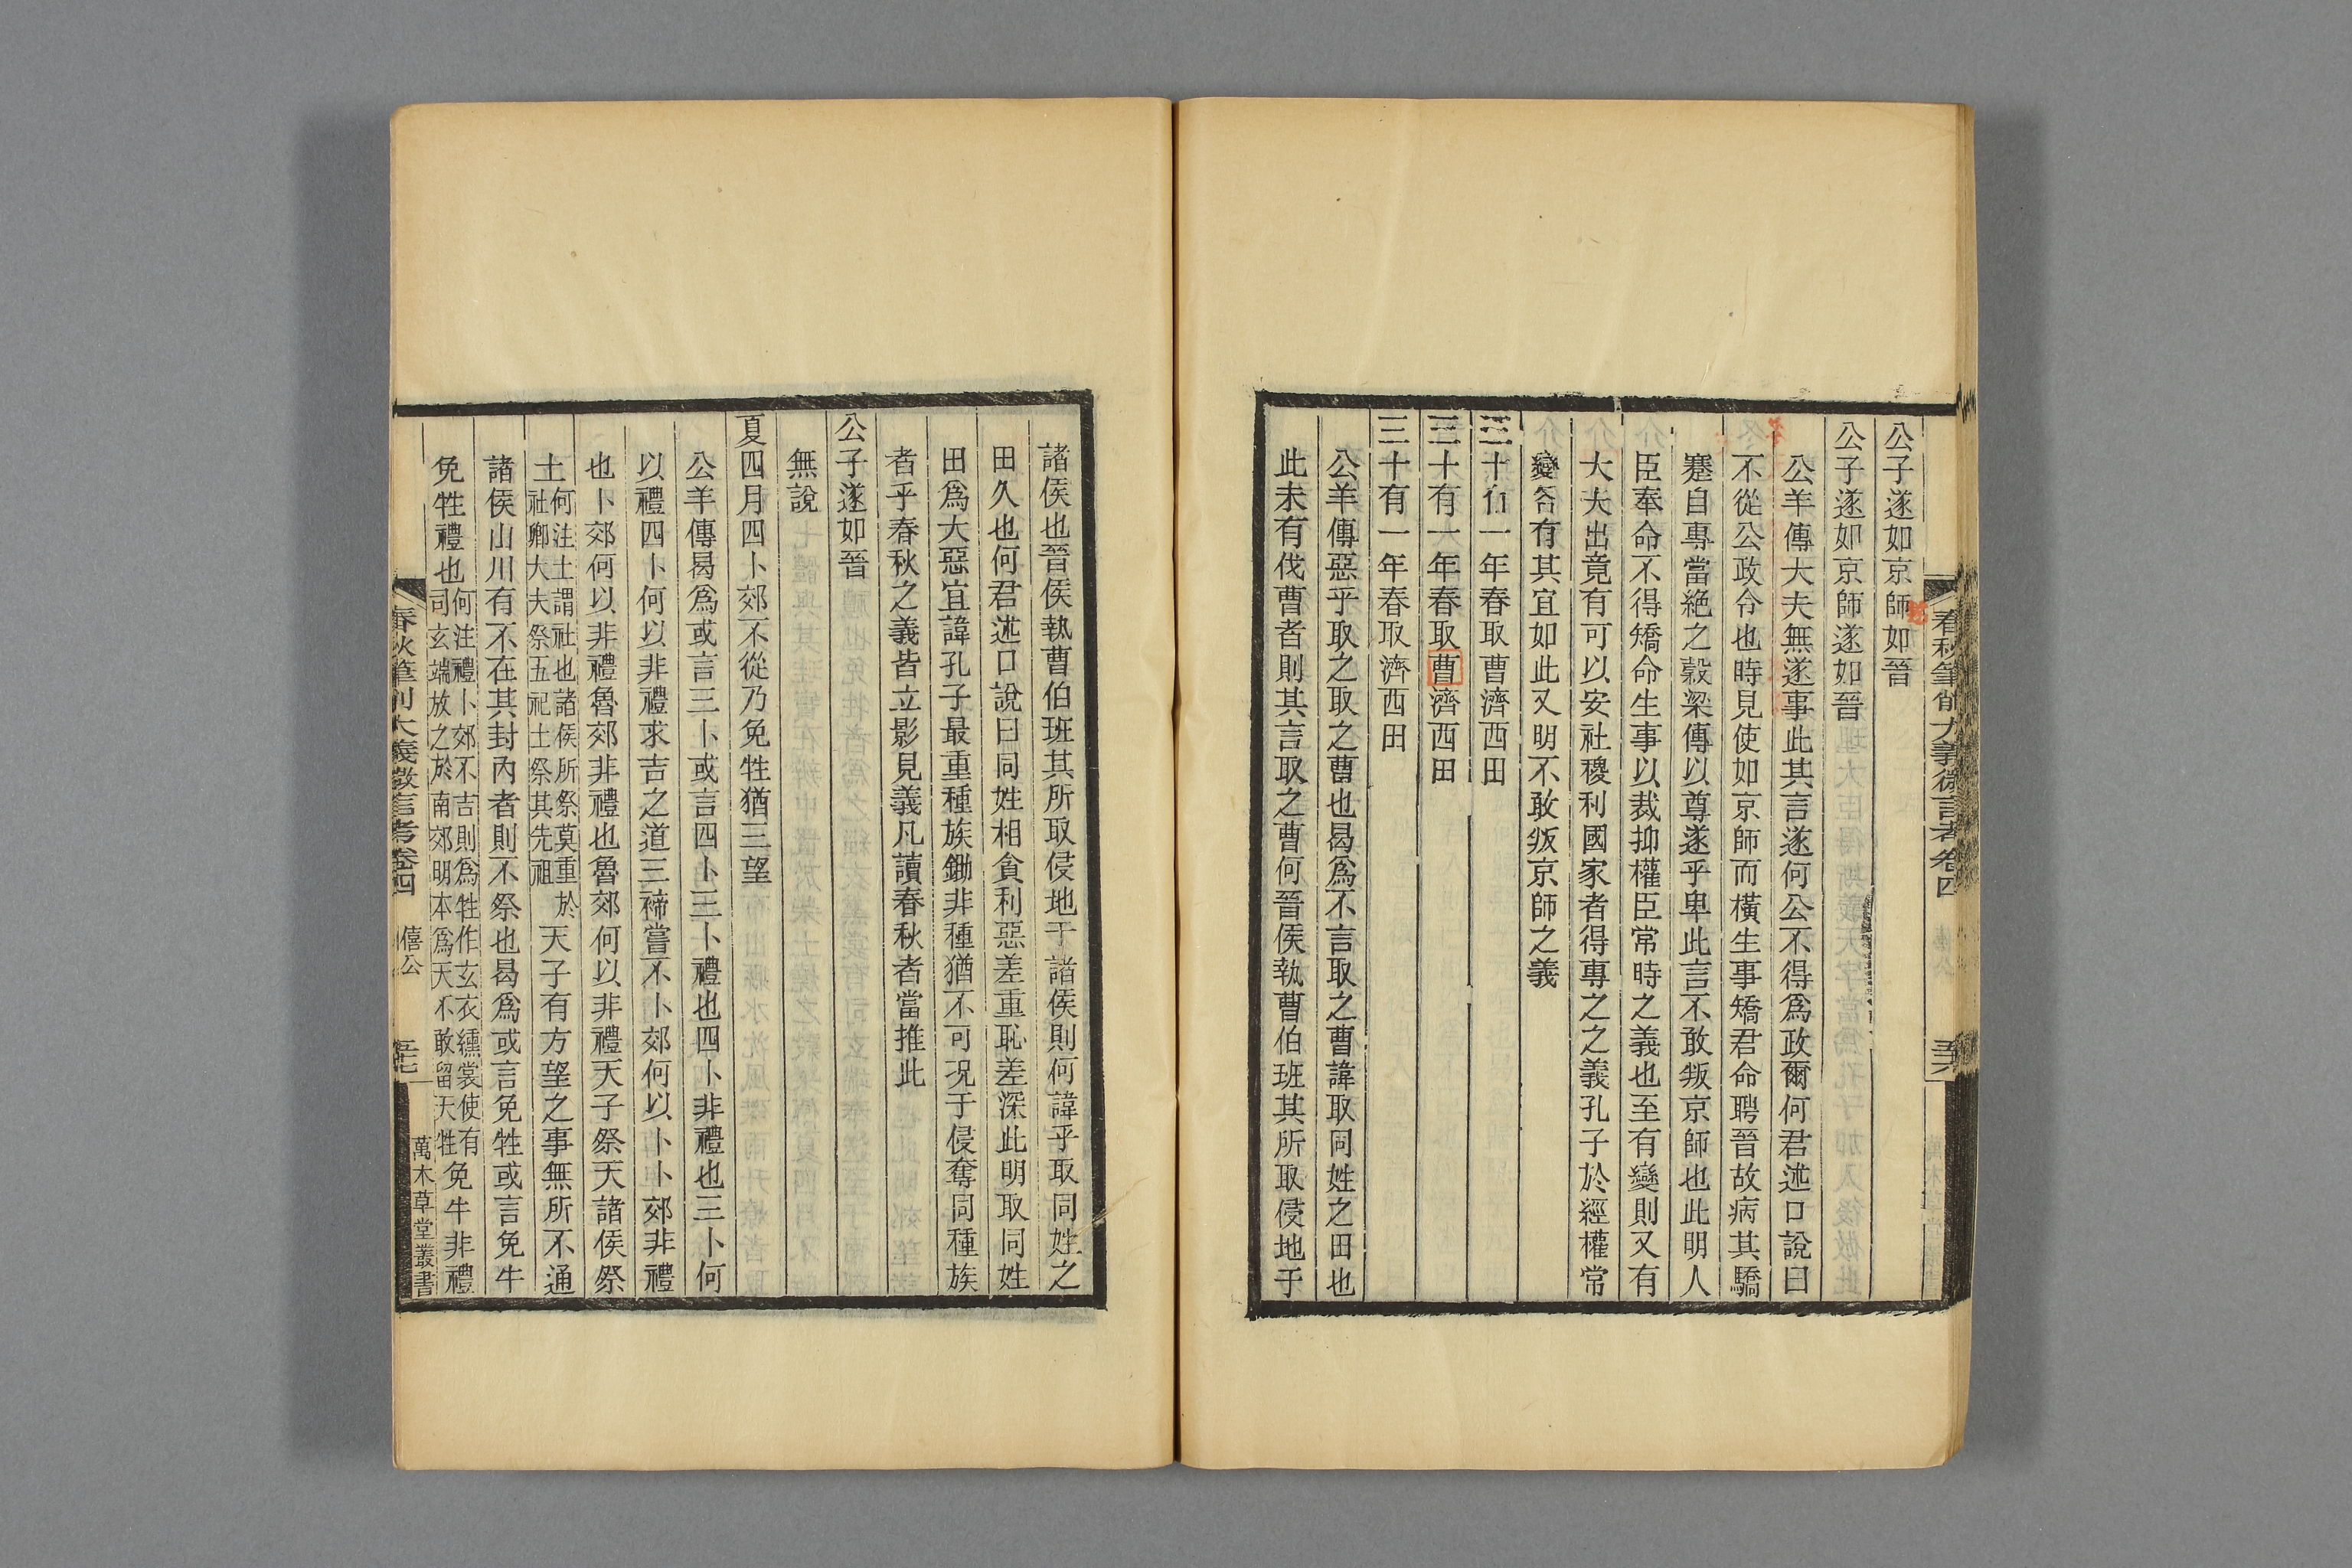 春秋筆削大義微言考卷四
公子遂如京師如晉
公子遂如京師遂如晉
公羊傳大夫無遂事此其言遂何公不得爲政爾何君述口說曰
不從公政令也時見使如京師而橫生事矯君命聘晉故病其驕
蹇自專當絕之穀梁傳以尊遂乎卑此言不敢叛京師也此明人
臣奉命不得矯命生事以裁抑權臣常時之義也至有變則又有
大夫出竟有可以安社稷利國家者得專之之義孔子於經權常
變各有其宜如此又明不敢叛京師之義
三十有一年春取曹濟西田
三十有一年春取曹濟西田
三十有一年春取濟西田
公羊傳惡乎取之取之曹也曷爲不言取之曹諱取同姓之田也
此未有伐曹者則其言取之曹何晉侯執曹伯班其所取侵地于
諸侯也晉侯執曹伯班其所取侵地于諸侯則何諱乎取同姓之
田久也何君述口說曰同姓相貪利惡差重恥差深此明取同姓
田爲大惡宜諱孔子最重種族鋤非種猶不可況于侵奪同種族
者乎春秋之義皆立影見義凡讀春秋者當推此
公子遂如晉
無說
夏四月四卜郊不從乃免牲猶三望
公羊傳曷爲或言三卜或言四卜三卜禮也四卜非禮也三卜何
以禮四卜何以非禮求吉之道三禘嘗不卜郊何以卜卜郊非禮
也卜郊何以非禮魯郊非禮也魯郊何以非禮天子祭天諸侯祭
土何注土謂社也諸侯所祭莫重於社卿大夫祭五祀士祭其先祖天子有方望之事無所不通
諸侯山川有不在其封內者則不祭也曷爲或言免牲或言免牛
免牲禮也何注禮卜郊不吉則爲牲作玄衣纁裳使有司玄端放之於南郊明本爲天不敢留天牲免牛非禮
春秋筆削大義微言考卷四 僖公 萬木草堂叢書